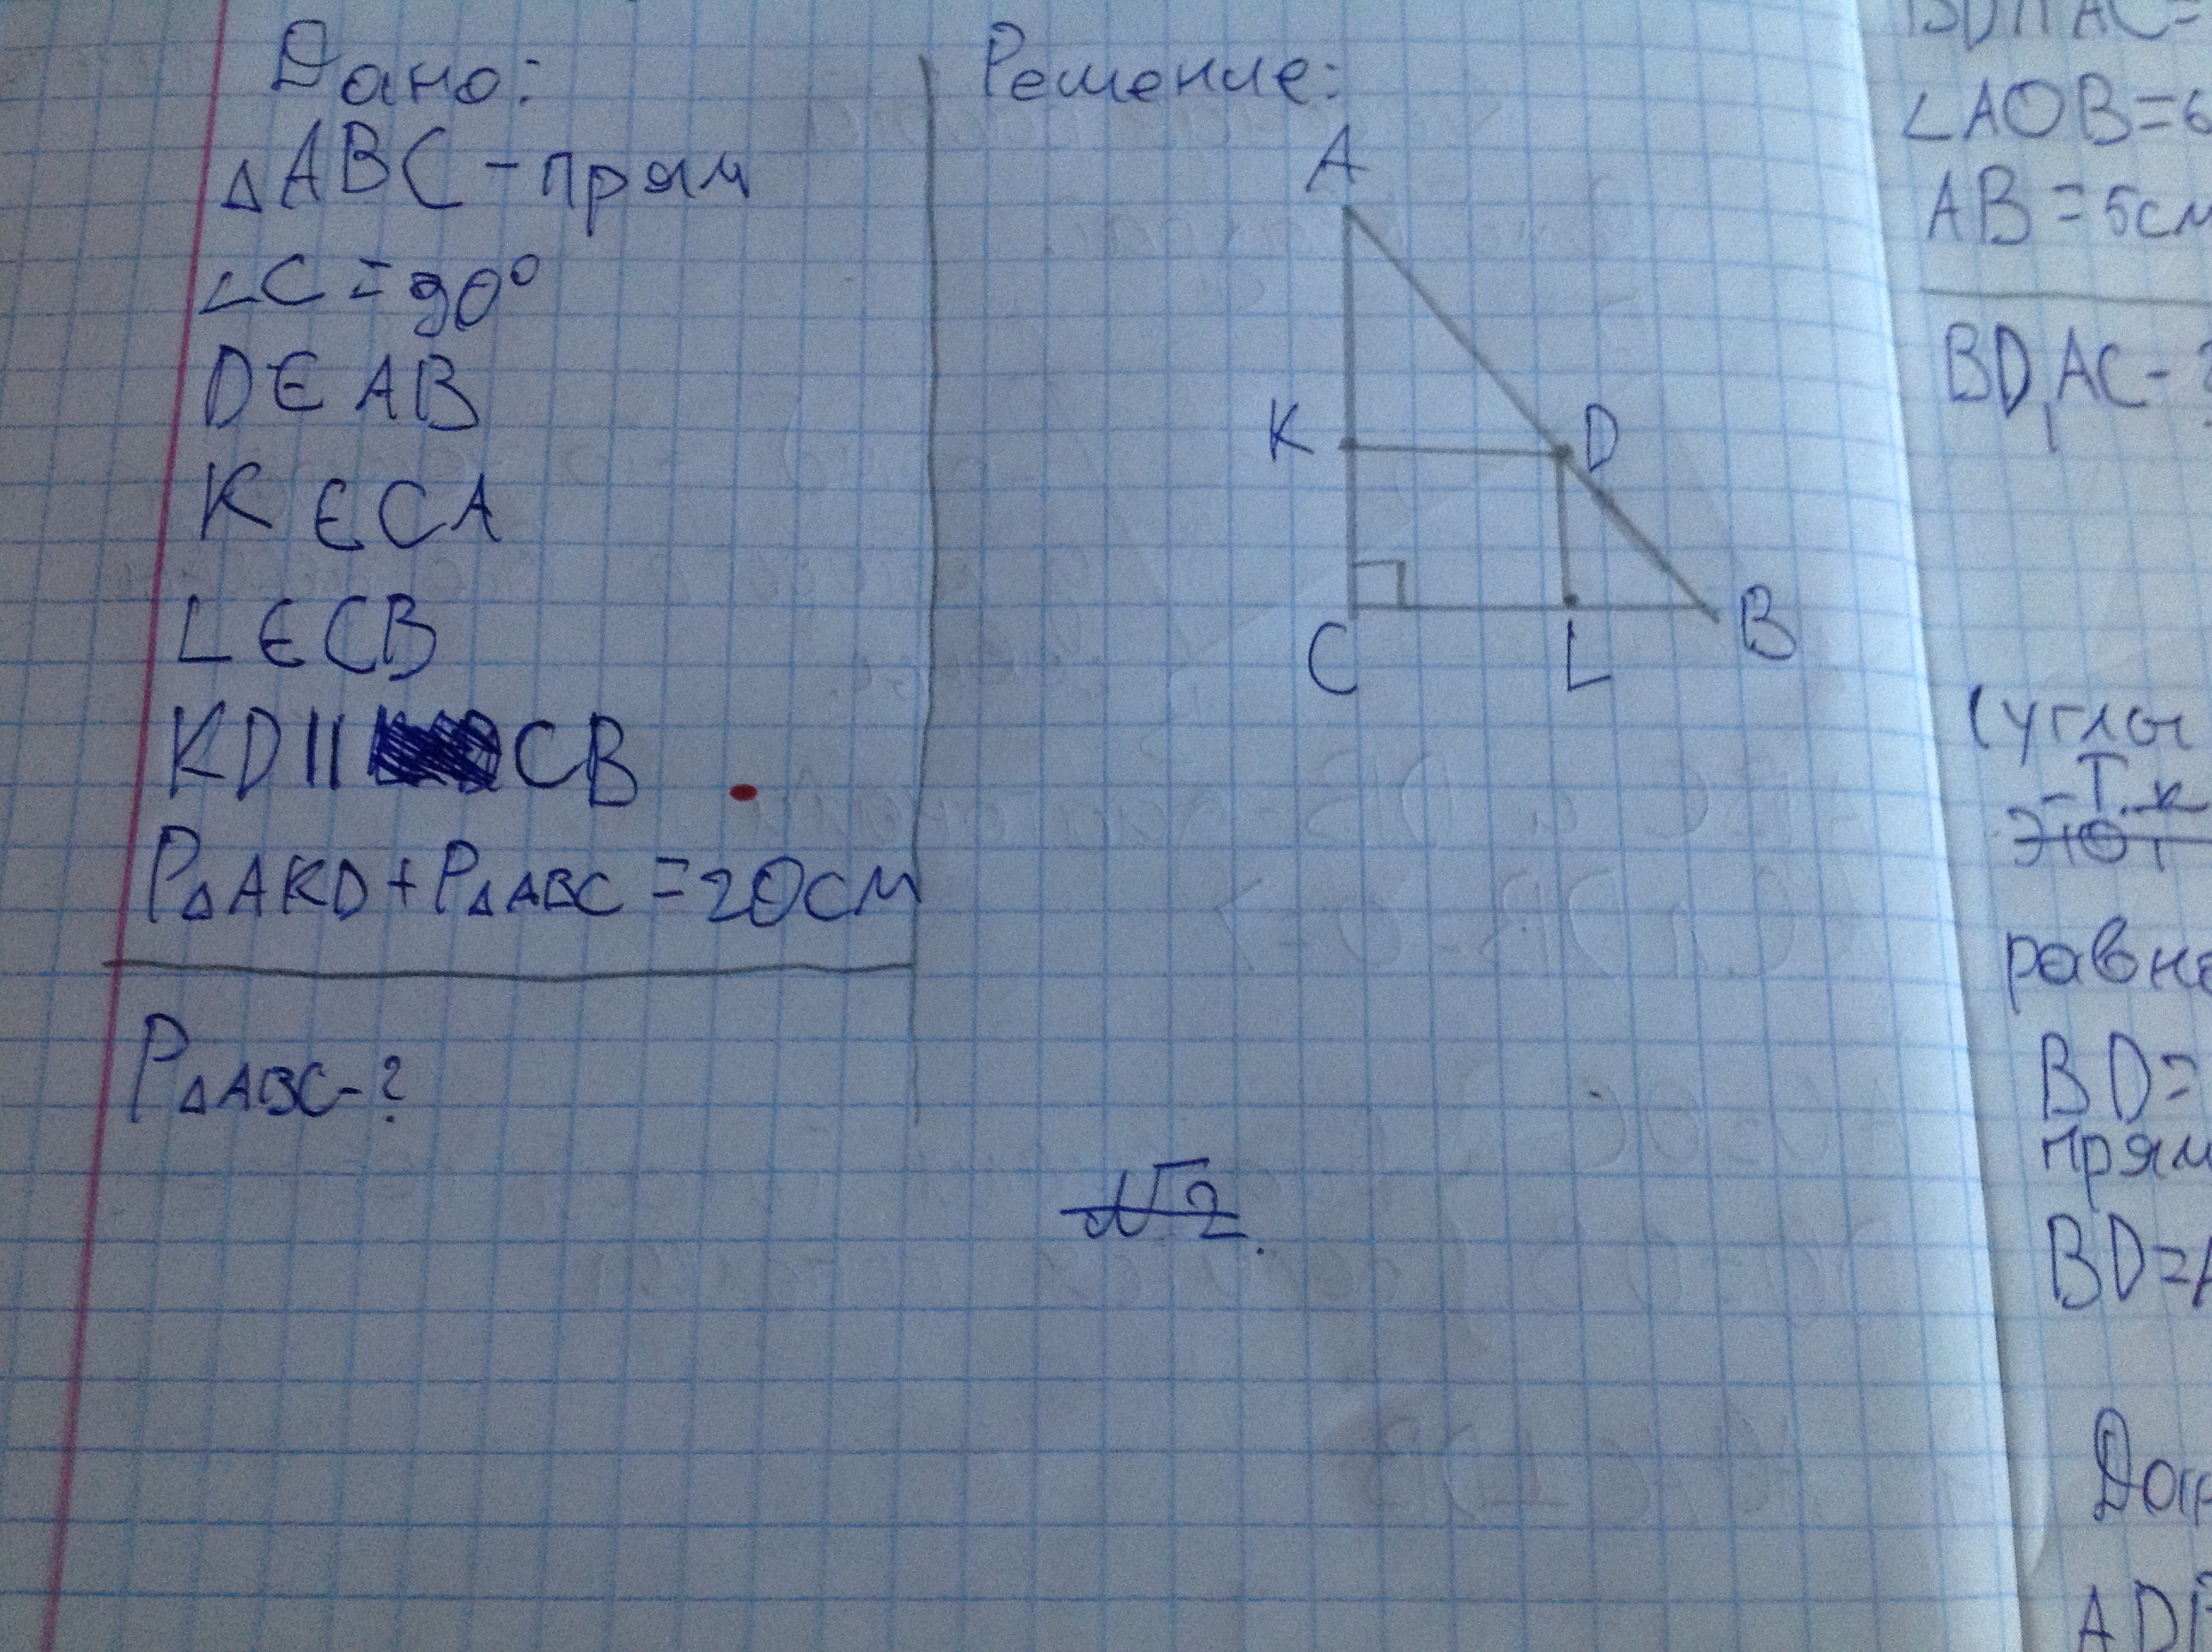 Дано:
△ABC - прям
∠C = 90°
D ∈ AB
K ∈ CA
L ∈ CB
KD || CB
P△AKD + P△ABC = 20см
P△ABC - ?
Решение:
A
K
D
C
L
B
√2.
∠AOB = 6
AB = 5см
BD, AC - ?
(углы
-Т.к
этот
равне
BD =
прям
BD = A